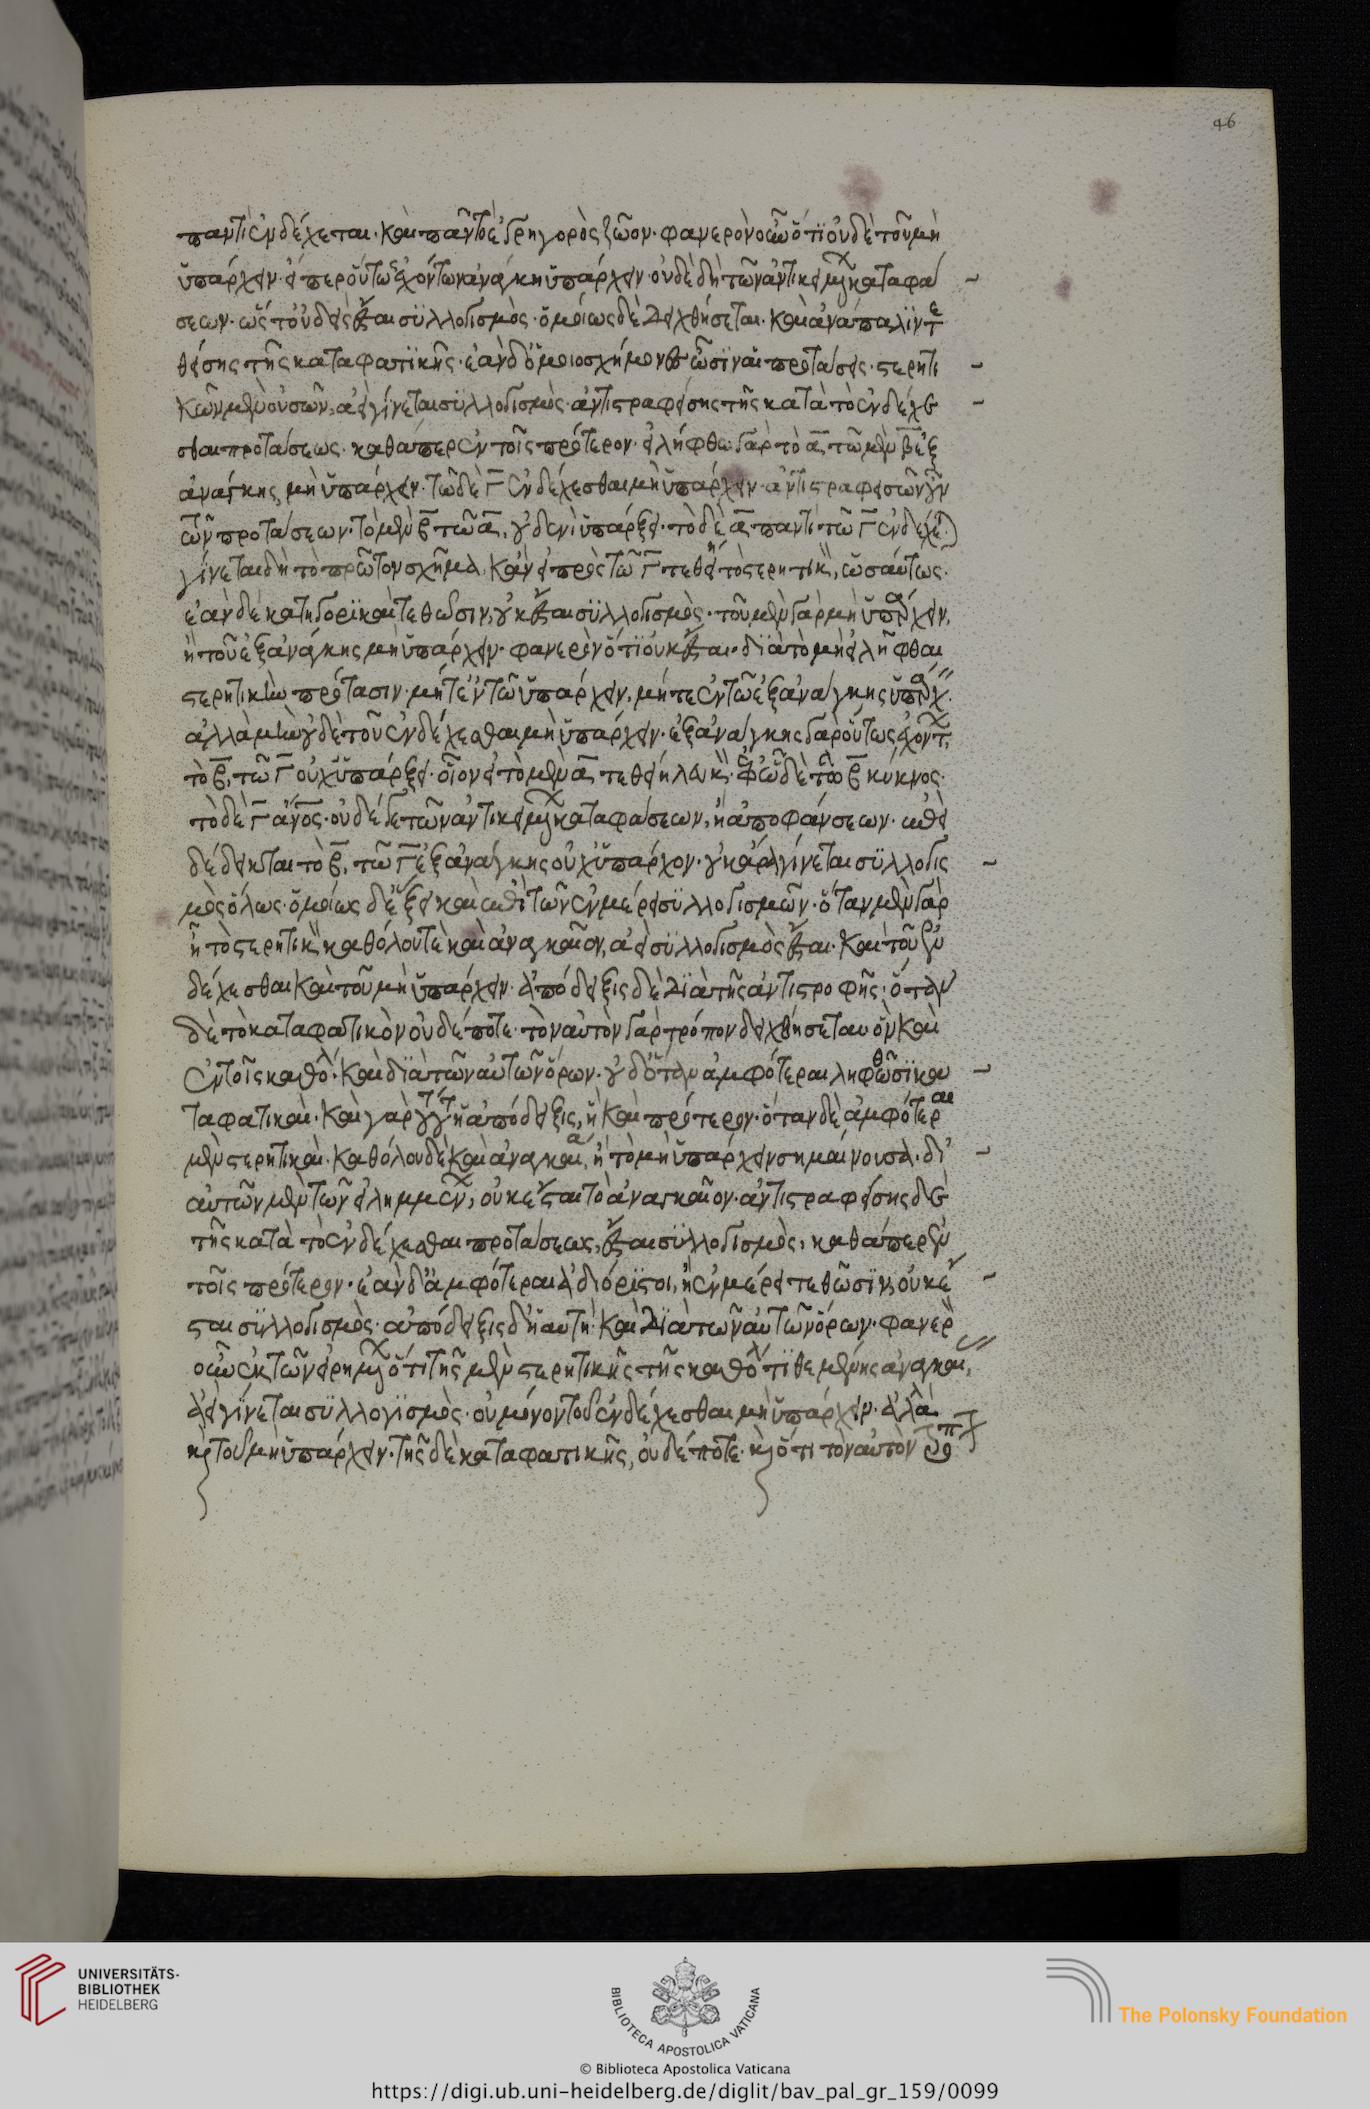 46
παντὶ ἐνδέχεται· καὶ παντὶ ἐγρηγορὸς ζῶον· φανερὸν οὖν ὅτι οὐδὲ τοῦ μὴ
ὑπάρχειν· εἴπερ οὕτως ἐχόντων ἀνάγκη ὑπάρχειν· οὐδὲ δὴ τῶν ἀντικειμένων καταφά
σεων· ὥστ' οὐδεὶς ἔσται συλλογισμός· ὁμοίως δὲ δειχθήσεται· καὶ ἀνάπαλιν τε
θείσης τῆς καταφατικῆς· ἐὰν δ' ὁμοιοσχήμονες ὦσιν αἱ προτάσεις· στερητι
κῶν μὲν οὐσῶν, ἀεὶ γίνεται συλλογισμὸς ἀντιστραφείσης τῆς κατὰ τὸ ἐνδέχε
σθαι προτάσεως· καθάπερ ἐν τοῖς πρότερον· εἰλήφθω γὰρ τὸ α τῶ μὲν β ἐξ
ἀνάγκης μὴ ὑπάρχειν· τῶ δὲ Γ ἐνδέχεσθαι μὴ ὑπάρχειν· ἀντιστραφεισῶν οὖν
τῶν προτάσεων· τὸ μὲν β τῶ α, οὐδενὶ ὑπάρξει· τὸ δὲ α παντὶ τῶ Γ ἐνδέχεται
γίνεται δὴ τὸ πρῶτον σχῆμα, κἂν εἰ πρὸς τῶ Γ τεθείη τὸ στερητικὸν, ὡσαύτως·
ἐὰν δὲ κατηγορικαὶ τεθῶσιν, οὐκ ἔσται συλλογισμός· τοῦ μὲν γὰρ μὴ ὑπάρχειν,
ἢ τοῦ ἐξ ἀνάγκης μὴ ὑπάρχειν· φανερὸν ὅτι οὐκ ἔσται· διὰ τὸ μὴ εἰλῆφθαι
στερητικὴν πρότασιν· μήτ' ἐν τῶ ὑπάρχειν, μήτε ἐν τῶ ἐξ ἀνάγκης ὑπάρχειν·
ἀλλὰ μὴν οὐδὲ τοῦ ἐνδέχεσθαι μὴ ὑπάρχειν· ἐξ ἀνάγκης γὰρ οὕτως ἐχόντων,
τὸ β, τῶ Γ οὐχ ὑπάρξει· οἷον εἰ τὸ μὲν α τεθείη λευκὸν· ἐφ' ὧ δὲ τὸ β κύκνος·
τὸ δὲ Γ ἄνος· οὐδέ γε τῶν ἀντικειμένων καταφάσεων, ἢ ἀποφάνσεων· ἐπεὶ
δέδεικται τὸ β, τῶ Γ ἐξ ἀνάγκης οὐχ ὑπάρχον· οὐκ ἄρα γίνεται συλλογισ
μὸς ὅλως· ὁμοίως δ' ἕξει καὶ ἐπὶ τῶν ἐν μέρει συλλογισμῶν· ὅταν μὲν γὰρ
ἦ τὸ στερητικὸν καθόλου τὲ καὶ ἀναγκαῖον, ἀεὶ συλλογισμὸς ἔσται· καὶ τοῦ ἐν
δέχεσθαι καὶ τοῦ μὴ ὑπάρχειν· ἀπόδειξις δὲ διὰ τῆς ἀντιστροφῆς· ὅταν
δὲ τὸ καταφατικὸν οὐδέποτε· τὸν αὐτὸν γὰρ τρόπον δειχθήσεται ὃν καὶ
ἐν τοῖς καθόλ· καὶ διὰ τῶν αὐτῶν ὅρων· οὐδ' ὅταν ἀμφότεραι ληφθῶσι κα
ταφατικαὶ· καὶ γὰρ τούτου ἡ ἀπόδειξις, ἣ καὶ πρότερον· ὅταν δὲ ἀμφότεραι
μὲν στερητικαὶ· καθόλου δὲ καὶ ἀναγκαία, ἡ τὸ μὴ ὑπάρχειν σημαίνουσα· δι'
αὐτῶν μὲν τῶν εἰλημμένων, οὐκ ἔσται τὸ ἀναγκαῖον· ἀντιστραφείσης δὲ
τῆς κατὰ τὸ ἐνδέχεσθαι προτάσεως, ἔσται συλλογισμὸς, καθάπερ ἐν
τοῖς πρότερον· ἐὰν δ' ἀμφότεραι ἀδιόριστοι, ἢ ἐν μέρει τεθῶσιν, οὐκ ἔ
σται συλλογισμός· ἀπόδειξις δ' ἡ αὐτὴ· καὶ διὰ τῶν αὐτῶν ὅρων· φανερὸν
οὖν ἐκ τῶν εἰρημένων ὅτι τῆς μὲν στερητικῆς τῆς καθόλ τιθεμένης ἀναγκαί,
ἀεὶ γίνεται συλλογισμὸς· οὐ μόνον τοῦ ἐνδέχεσθαι μὴ ὑπάρχειν· ἀλλὰ
καὶ τοῦ μὴ ὑπάρχειν· τῆς δὲ καταφατικῆς, οὐδέποτε· καὶ ὅτι τὸν αὐτὸν τρόπον
UNIVERSITÄTS-
BIBLIOTHEK
HEIDELBERG
BIBLIOTECA APOSTOLICA VATICANA
The Polonsky Foundation
© Biblioteca Apostolica Vaticana
https://digi.ub.uni-heidelberg.de/diglit/bav_pal_gr_159/0099